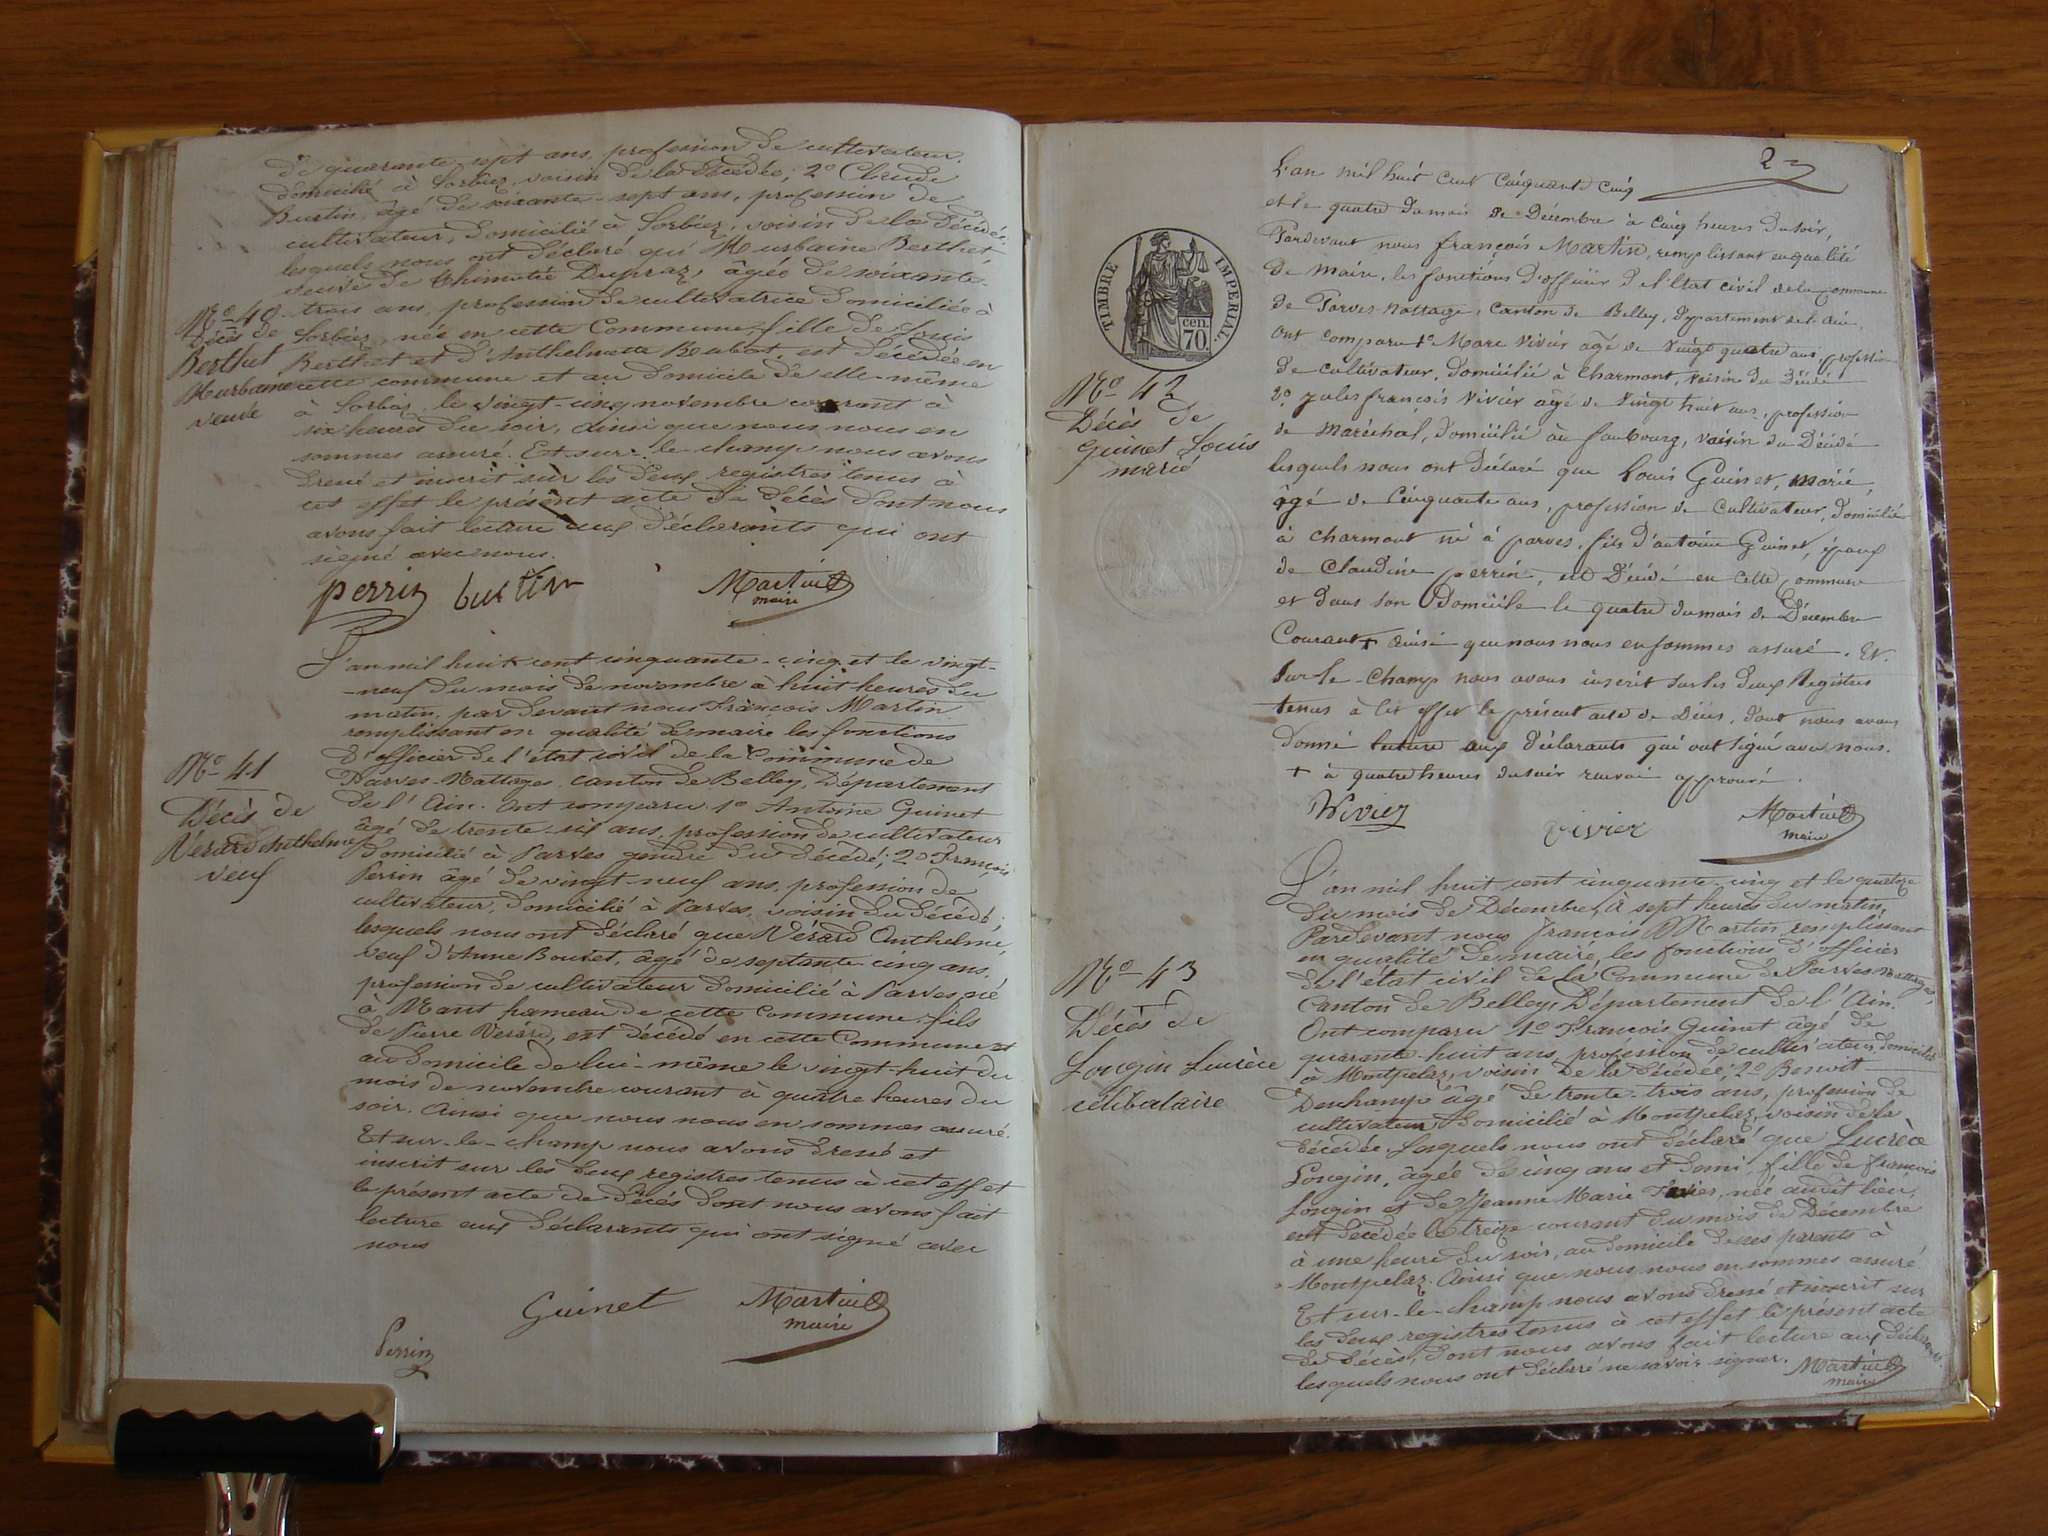 de quarante-sept ans, profession de cultivateur,
domicilié à Sorbiez, voisin de la décédée; 2º Claude
Burtin, âgé de soixante-sept ans, profession de
cultivateur, domicilié à Sorbiez, voisin de la décédée,
lesquels nous ont déclaré qu'Meurbaine Berthet
veuve de Thimoté Dupraz, âgée de soixante-
trois ans, profession de cultivatrice domiciliée à
Sorbiez, née en cette Commune, fille de Louis
Berthet et d'Anthelmette est décédée en
cette commune et au domicile de elle-même
à Sorbiez, le vingt-cinq novembre courant à
six heures du soir, Ainsi que nous nous en
sommes assuré. Et sur-le-champ nous avons
dressé et inscrit sur les deux registres tenus à
cet effet le présent acte de décès dont nous
avons fait lecture aux déclarants qui ont
signé avec nous.
Nº 40
Décès de
Berthet
Meurbaine
veuve
perrin burtin Martin
maire
L'an mil huit cent cinquante-cinq et le vingt-
-neuf du mois de novembre à huit heures du
matin, par devant nous François Martin
remplissant en qualité de maire les fonctions
d'officier de l'état civil de la Commune de
Parves-Nattages, canton de Belley, Département
de l'Ain. Ont comparu 1º Antoine Guinet
âgé de trente-six ans, profession de cultivateur
domicilié à Parves gendre du décédé; 2º François
Perrin âgé de vingt-neuf ans, profession de
cultivateur, domicilié à Parves, voisin du décédé;
lesquels nous ont déclaré que Vérard Anthelme,
veuf d'Anne Bouvet, âgé de septante-cinq ans,
profession de cultivateur domicilié à Parves, né
à Mant hameau de cette Commune, fils
de Pierre Verard, est décédé en cette Commune et
au domicile de lui-même le vingt-huit du
mois de novembre courant à quatre heures du
soir. Ainsi que nous nous en sommes assuré.
Et sur-le-champ nous avons dressé et
inscrit sur les deux registres tenus à cet effet
le présent acte de décès dont nous avons fait
lecture aux déclarants qui ont signé avec
nous
Nº 41
Décès de
Vérard Anthelme
veuf
Guinet Martin
maire
Perrin
2
L'an mil huit cent cinquante cinq
et le quatre du mois de Décembre à cinq heures du soir,
Pardevant nous françois Martin, remplissant en qualité
de maire, les fonctions d'officier de l'Etat civil de la Commune
de Parves-Nattages, canton de Belley, département de l'Ain.
Ont comparu 1º Marc Vivier âgé de vingt quatre ans, profession
de cultivateur, domicilié à Charmont, voisin du décédé
2º Jules françois Vivier âgé de vingt huit ans, profession
de maréchal, domicilié au faubourg, voisin du décédé
lesquels nous ont déclaré que Louis Guinet, marié,
âgé de cinquante ans, profession de cultivateur, domicilié
à Charmont né à parves, fils d'antoine Guinet, époux
de Claudine perrin, est décédé en cette Commune
et dans son Domicile le quatre du mois de Décembre
Courant + ainsi que nous nous en sommes assuré. Et
sur-le-champ nous avons inscrit sur les deux Registres
tenus à cet effet le présent acte de décès, dont nous avons
donné lecture aux déclarants qui ont signé avec nous.
+ à quatre heures du soir renvoi approuvé.
TIMBRE IMPERIAL
cen.
70.
Nº 42
Décès de
Guinet Louis
marié
Vivier vivier Martin
maire
L'an mil huit cent cinquante-cinq et le quatorze
du mois de Décembre, à sept heures du matin,
Pardevant nous françois Martin remplissant
en qualité de maire, les fonctions d'officier
de l'état civil de la Commune de Parves-Nattages,
Canton de Belley, Département de l'Ain.
Ont comparu 1º François Guinet âgé de
quarante-huit ans, profession de cultivateur, domicilié
à Montpelaz, voisin de la décédée; 2º Benoit
Deschamps âgé de trente-trois ans, profession de
cultivateur domicilié à Montpelaz, voisin de la
décédée. Lesquels nous ont déclaré que Lucrèce
Longin, âgée de cinq ans et demi, fille de françois
Longin et de Jeanne Marie née audit lieu,
est décédée le treize courant du mois de Décembre
à une heure du soir, au domicile de ses parents à
Montpelaz. Ainsi que nous nous en sommes assuré.
Et sur-le-champ nous avons dressé et inscrit sur
les deux registres tenus à cet effet le présent acte
de décès, dont nous avons fait lecture aux déclarants.
lesquels nous ont déclaré ne savoir signer. Martin
maire
Nº 43
Décès de
Longin Lucrèce
célibataire